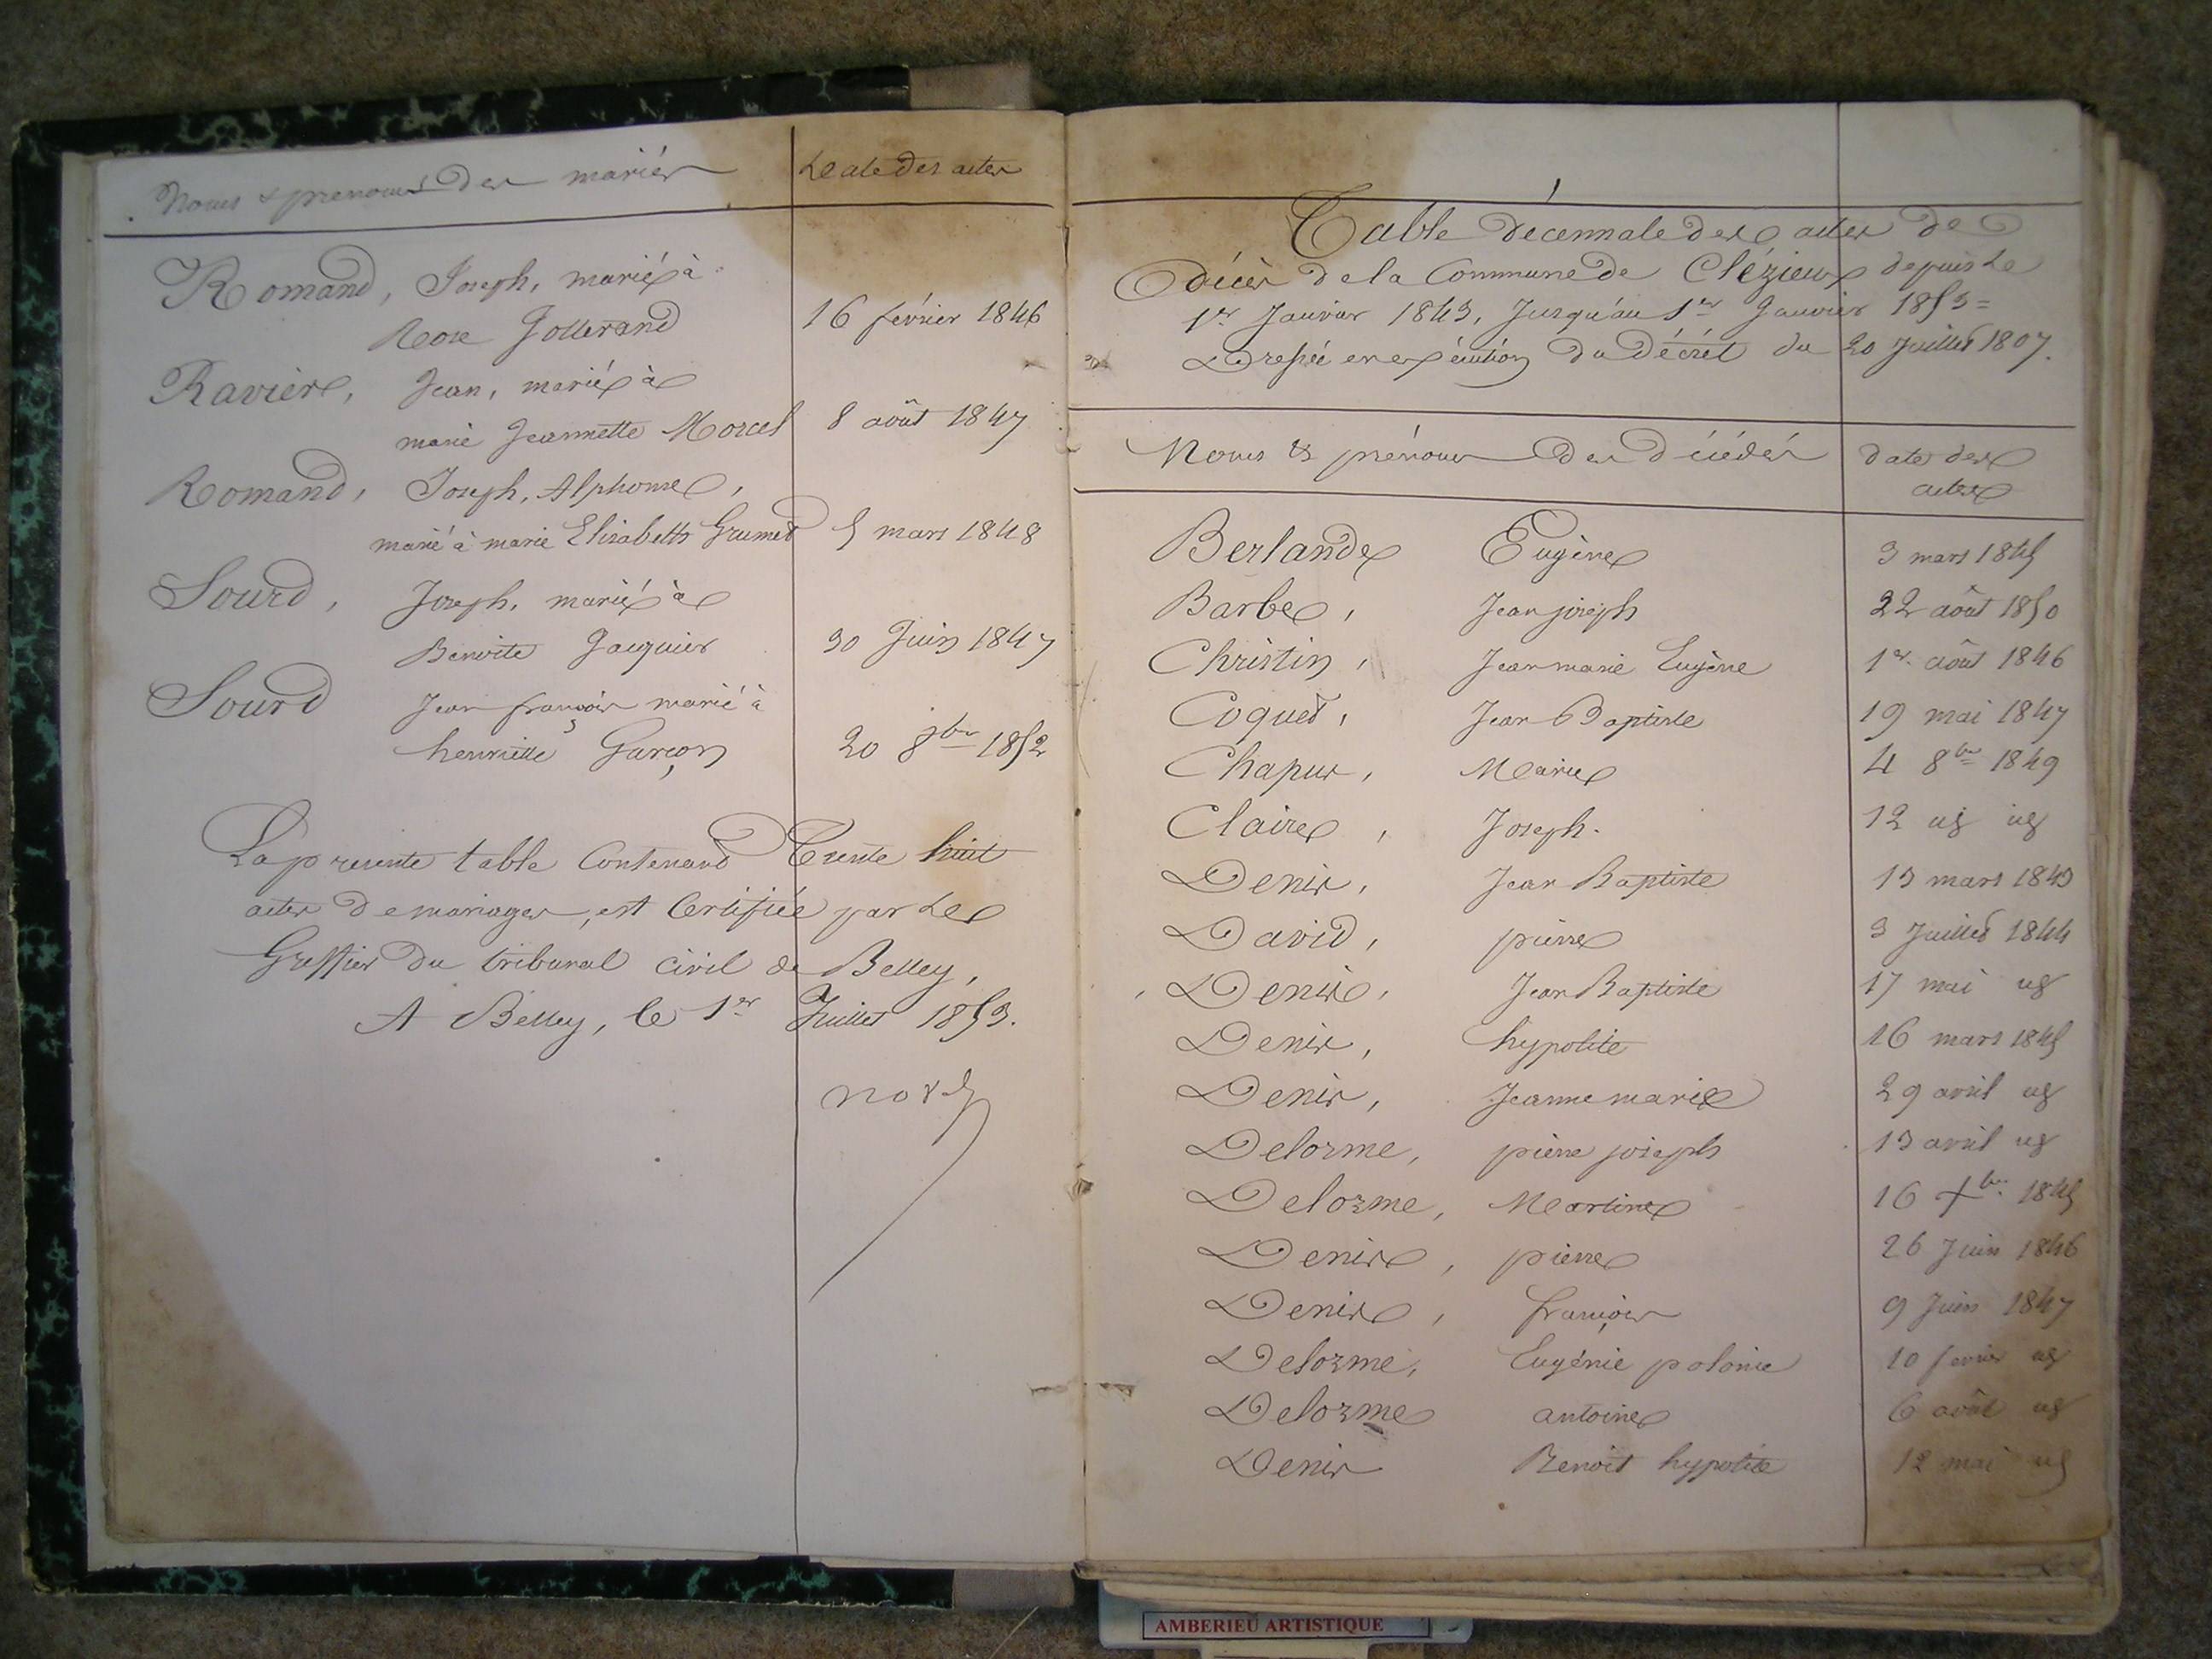 Noms & prenoms des mariés
Date des actes
Romand, Joseph, marié à
Rose Gollerand 16 février 1846
Ravière, Jean, marié à
marie Jeannette Morcel 8 août 1847
Romand, Joseph, Alphonse,
marié à marie Elisabeth Grumet 5 mars 1848
Sourd, Joseph, marié à
Benoite Jacquier 30 Juin 1847
Sourd Jean françois marié à
henriette Garçon 20 8bre 1852
La présente table Contenant Trente huit
actes de mariages, est Certifiée par le
Greffier du tribunal civil de Belley,
A Belley, le 1er Juillet 1853.
Table décennale des actes de
décès de la Commune de Clézieux depuis le
1er Janvier 1843, Jusqu'au 1er Janvier 1853=
Dressée en exécution du Décrét du 20 Juillet 1807.
Noms & prénoms des décédés date des
actes
Berlande Eugène 3 mars 1845
Barbe, Jean joseph 22 août 1850
Christin, Jean marie Eugène 1er août 1846
Coquet, Jean Baptiste 19 mai 1847
Chapus, Marie 4 8bre 1849
Claire, Joseph. 12 id id
Denis, Jean Baptiste 13 mars 1843
David, pierre 3 Juillet 1844
Denis, Jean Baptiste 17 mai id
Denis, hypolite 16 mars 1845
Denis, Jeanne marie 29 avril id
Delorme, pierre joseph 13 avril id
Delorme, Martine 16 Xbre 1845
Denis, pierre 26 Juin 1846
Denis, françois 9 Juin 1847
Delorme, Eugénie polonie 10 fevrier id
Delorme antoine 6 août id
Denis Benoit hypolite 12 mai id
AMBERIEU ARTISTIQUE